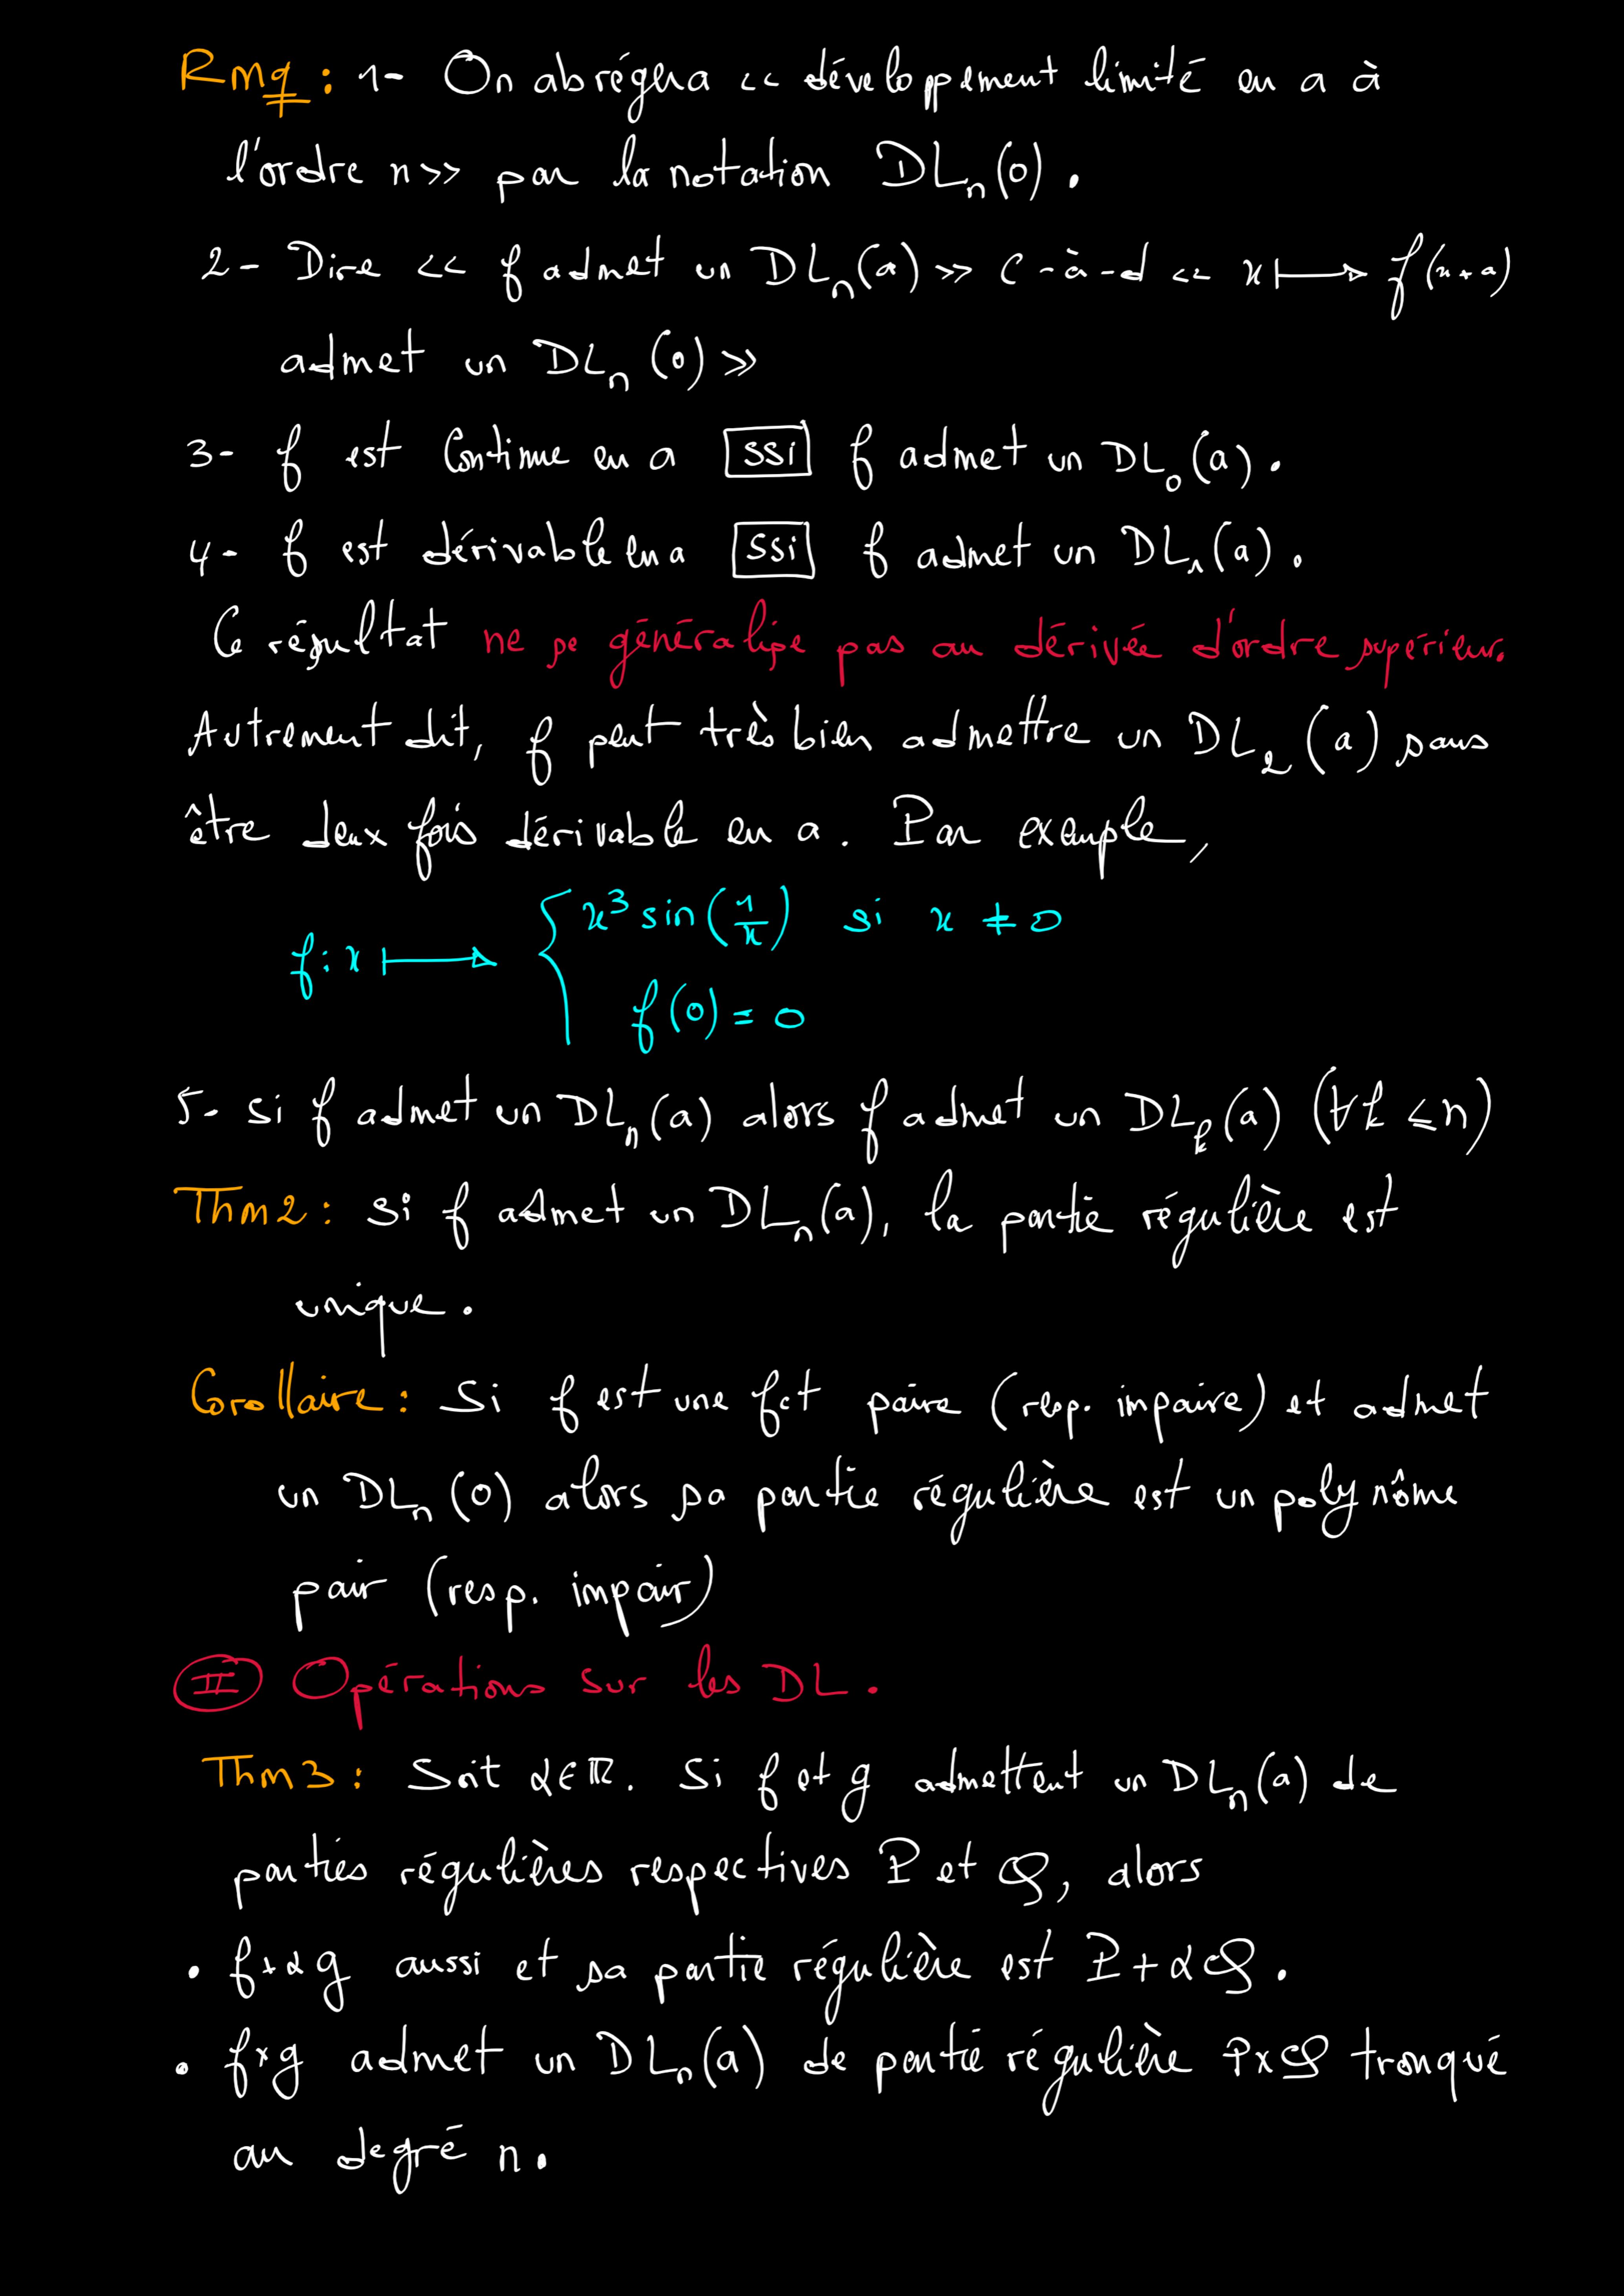 Rmq : 1- On abrégera << développement limité en a à
l'ordre n >> par la notation DLₙ(0).
2- Dire << f admet un DLₙ(a) >> c-à-d << x ⟼ f(x+a)
admet un DLₙ(0) >>
3- f est Continue en a ssi f admet un DL₀(a).
4- f est dérivable en a ssi f admet un DL₁(a).
Ce résultat ne se généralise pas au dérivée d'ordre supérieur.
Autrement dit, f peut très bien admettre un DL₂(a) sans
être deux fois dérivable en a. Par exemple,
f : x ⟼ { x³ sin(1/x) si x ≠ 0
f(0) = 0
5- si f admet un DLₙ(a) alors f admet un DLₖ(a) (∀k ≤ n)
Thm2 : si f admet un DLₙ(a), la partie régulière est
unique.
Corollaire : Si f est une fct paire (resp. impaire) et admet
un DLₙ(0) alors sa partie régulière est un polynôme
pair (resp. impair)
II Opérations sur les DL.
Thm3 : Soit α∈ℝ. Si f et g admettent un DLₙ(a) de
parties régulières respectives P et Q, alors
• f+αg aussi et sa partie régulière est P+αQ.
• f×g admet un DLₙ(a) de partie régulière P×Q tronqué
au degré n.